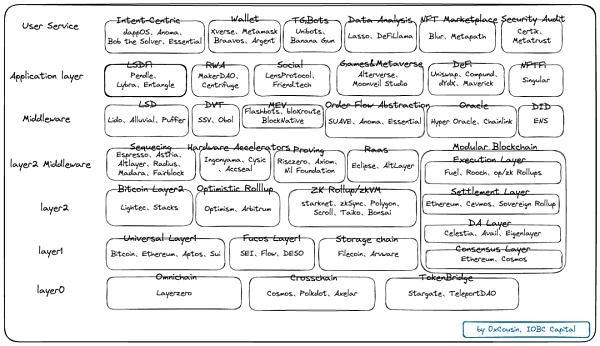 User Service
Intent-Centric
dappOS、Anoma、
Bob the Solver、Essential
Wallet
Xverse、Metamask
Braavos、Argent
TGBots
Unibots、
Banana Gun
Data Analysis
Lasso、DeFiLlama
NFT Marketplace
Blur、Metapath
Security Audit
Certik、
Metatrust
Application layer
LSDFi
Pendle、
Lybra、Entangle
RWA
MakerDAO、
Centrifuge
Social
LensProtocol、
Friend.tech
Games&Metaverse
Alterverse、
Moonveil Studio
DeFi
Uniswap、Compund、
dYdx、Maverick
NFTFi
Singular
Middleware
LSD
Lido、Alluvial、Puffer
DVT
SSV、Obol
MEV
Flashbots、bloXroute
BlockNative
Order Flow Abstraction
SUAVE、Anoma、Essential
Oracle
Hyper Oracle、Chainlink
DID
ENS
layer2 Middleware
Sequecing
Espresso、Astria、
Altlayer、Radius、
Madara、Fairblock
Hardware Accelerators
Ingonyama、Cysic
、Accseal
Proving
Risczero、Axiom、
Nil Foundation
Raas
Eclipse、AltLayer
Modular Blockchain
Execution Layer
Fuel、Rooch、op/zk Rollups
Settlement Layer
Ethereum、Cevmos、Sovereign Rollup
DA Layer
Celestia、Avail、Eigenlayer
Consensus Layer
Ethereum、Cosmos
layer2
Bitcoin Layer2
Lightec、Stacks
Optimistic Rolllup
Optimism、Arbitrum
ZK Rollup/zkVM
starknet、zkSync、Polygon、
Scroll、Taiko、Bonsai
layer1
Universal Layer1
Bitcoin、Ethereum、Aptos、Sui
Fucos Layer1
SEI、Flow、DESO
Storage chain
Filecoin、Arware
layer0
Omnichain
Layerzero
Crosschain
Cosmos、Polkdot、Axelar
TokenBridge
Stargate、TeleportDAO
by 0xCousin, IOBC Capital